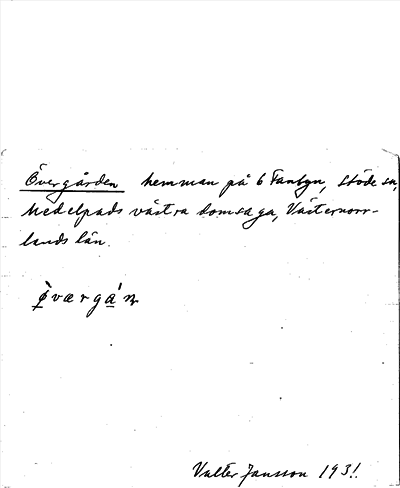 Övergården hemman på 6 Fanbyn, Stöde sn,
Medelpads västra domsaga, Västernorr-
lands län.
Valter Jansson 193!.